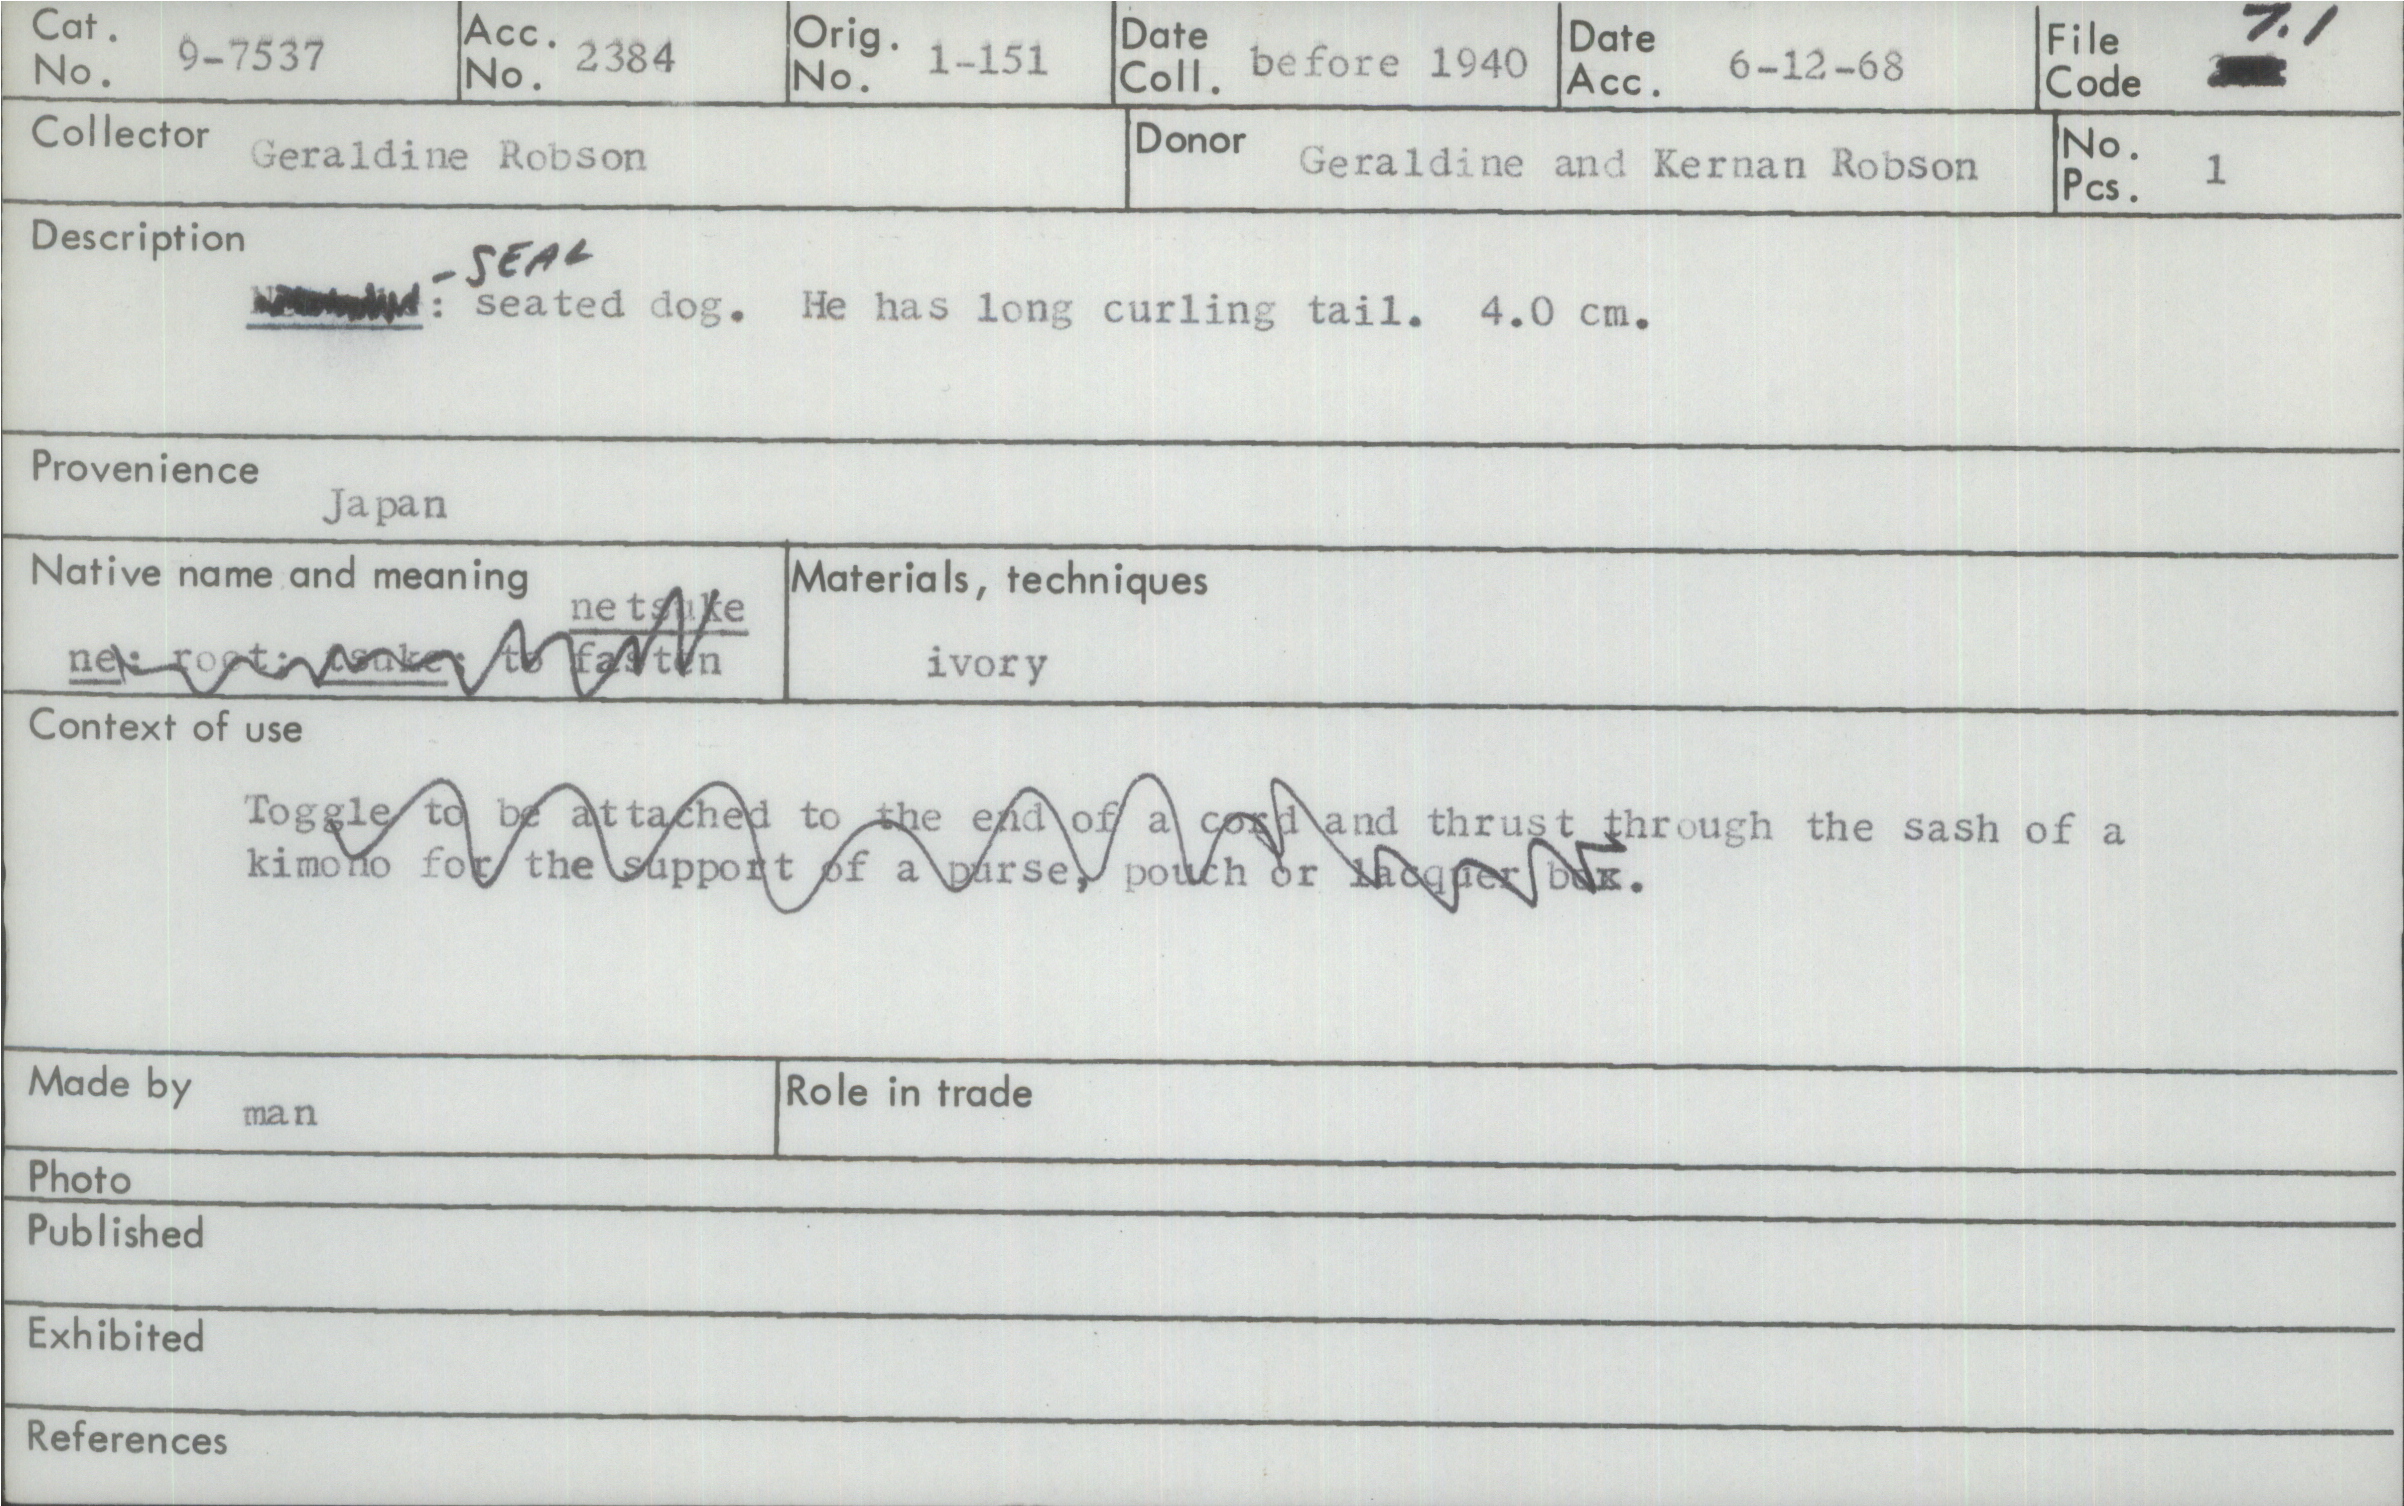 Cat. No. 9-7537
Acc. No. 2384
Orig. No. 1-151
Date Coll. before 1940
Date Acc. 6-12-68
File Code 7.1
Collector Geraldine Robson
Donor Geraldine and Kernan Robson
No. Pcs. 1
Description
- SEAL
: seated dog. He has long curling tail. 4.0 cm.
Provenience
Japan
Native name and meaning
netsuke
ne: root; tsuke: to fasten
Materials, techniques
ivory
Context of use
Toggle to be attached to the end of a cord and thrust through the sash of a
kimono for the support of a purse, pouch or lacquer box.
Made by
man
Role in trade
Photo
Published
Exhibited
References